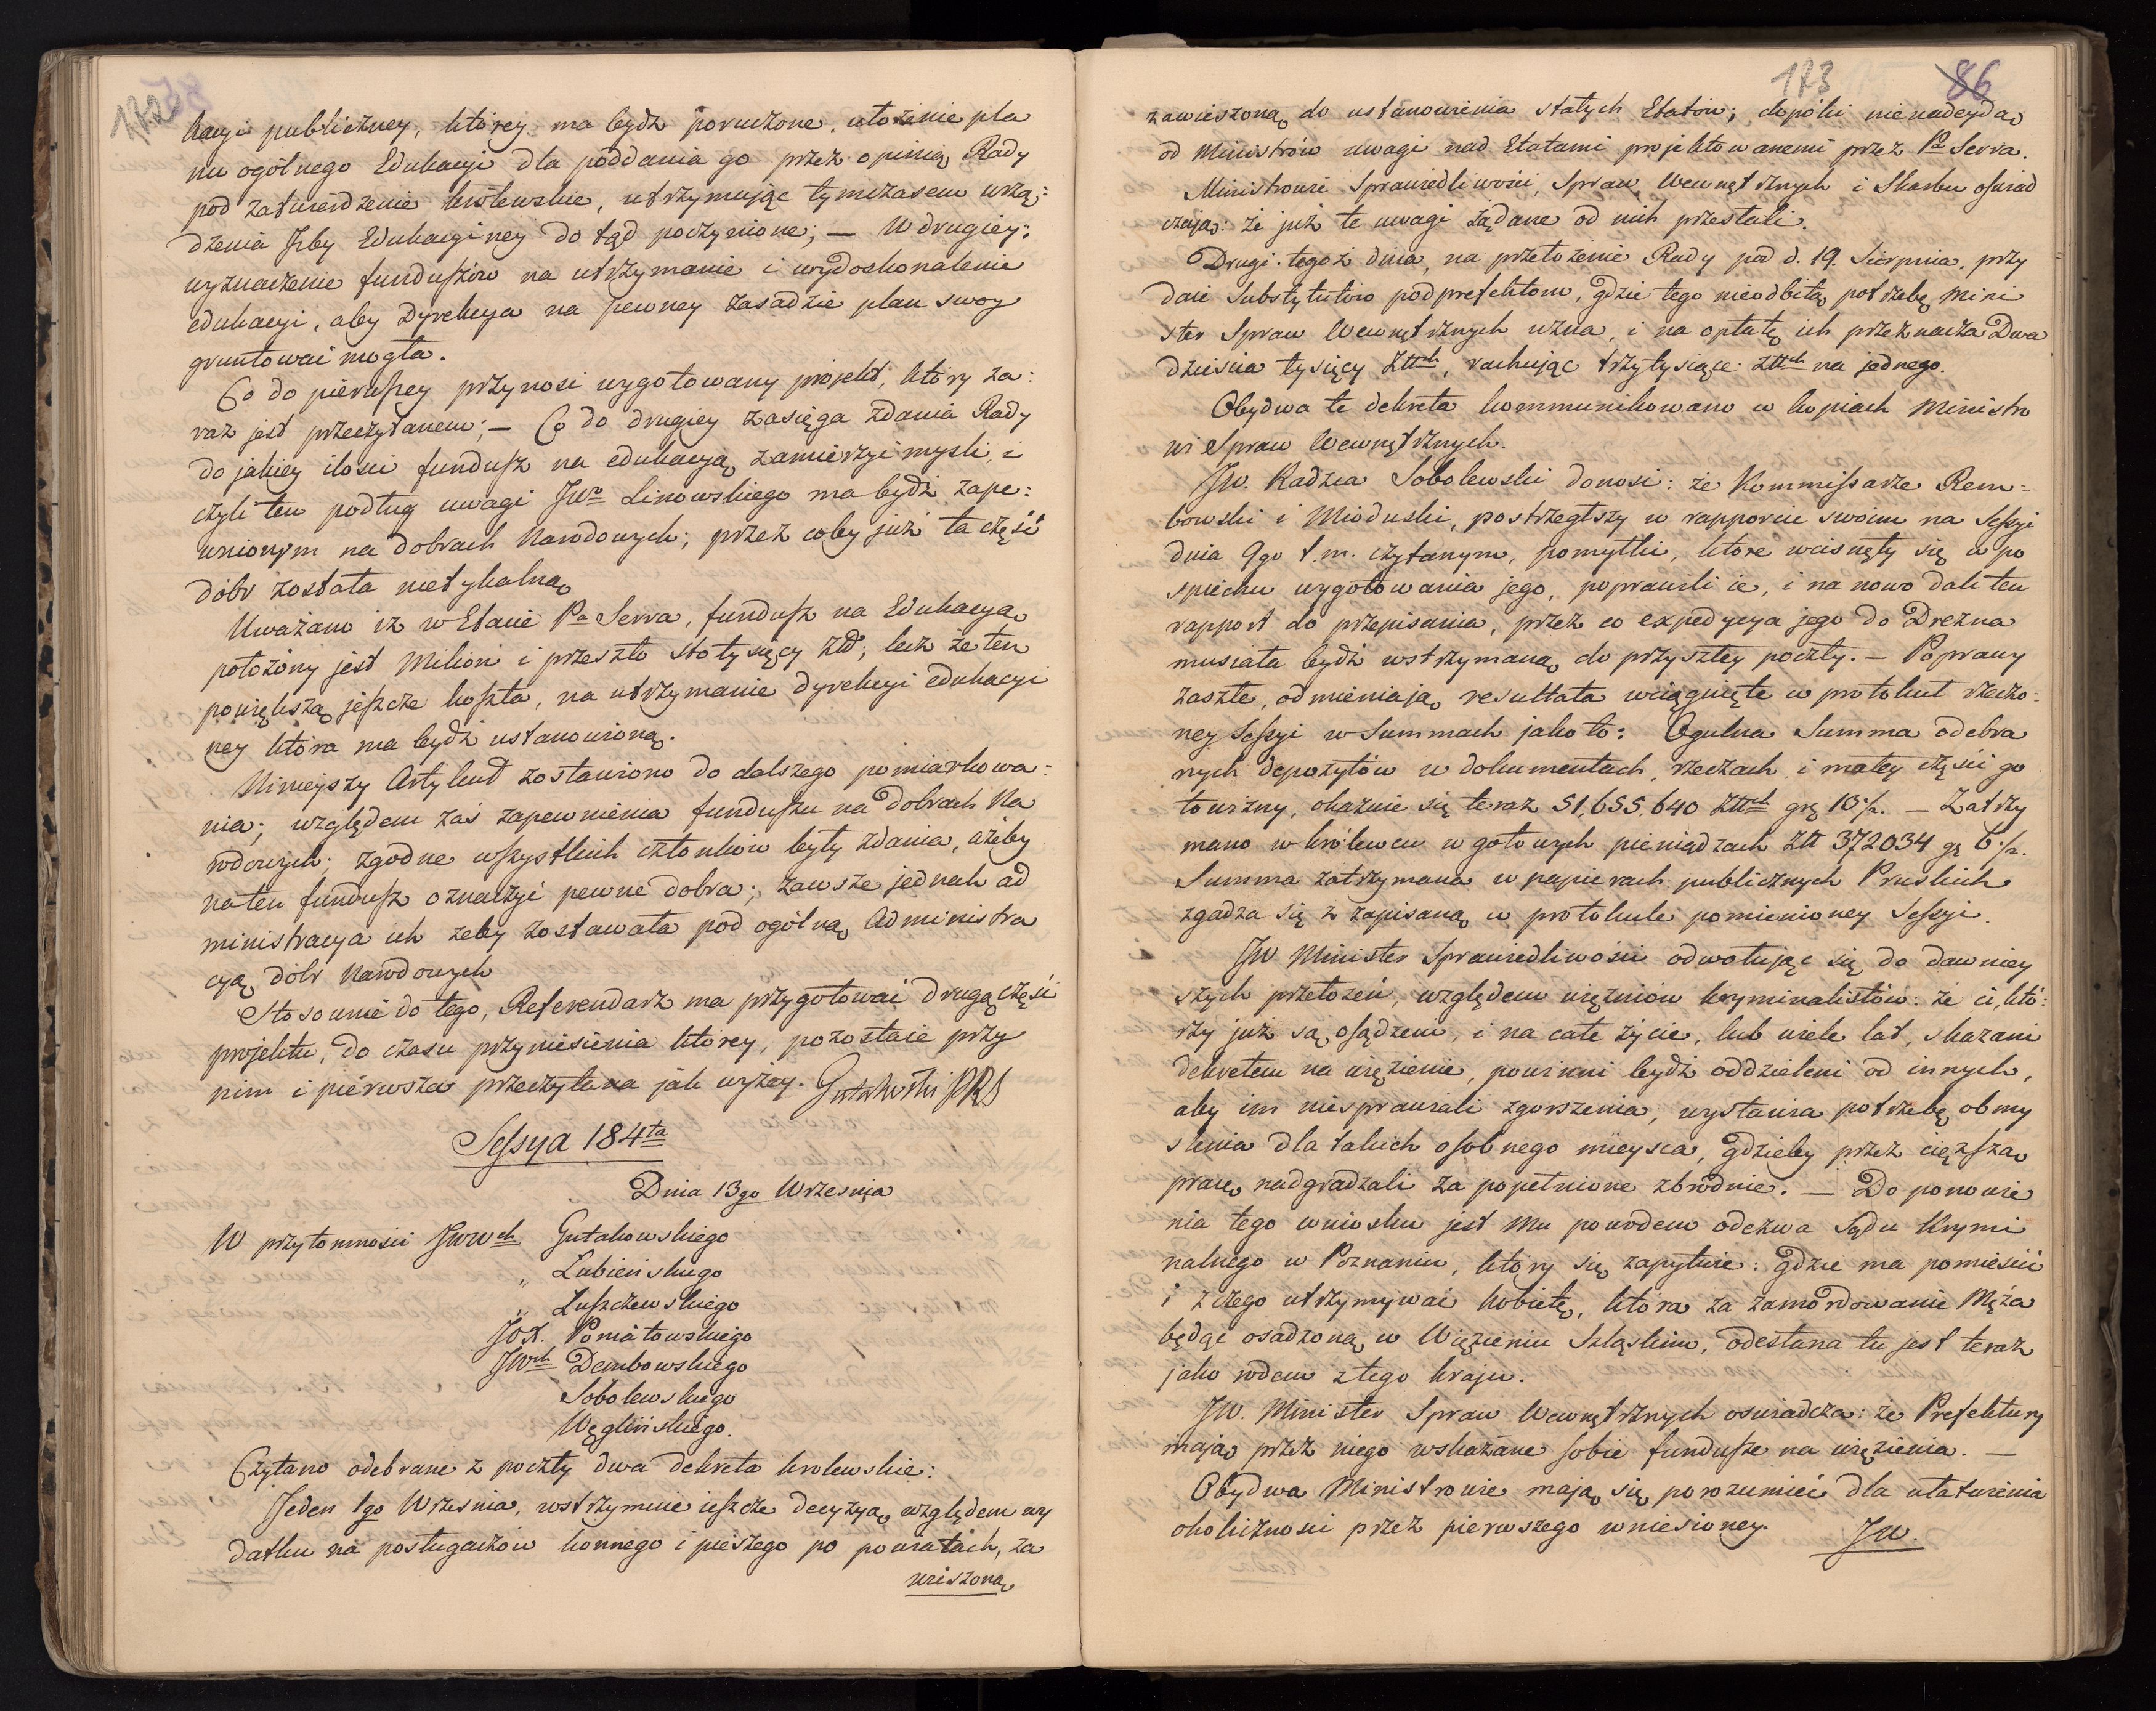 172
85
kacyi publiczney, którey ma bydź poruczone, ułożenie pla
nu ogólnego Edukacyi dla poddania go przez opinią Rady
pod zatwierdzenie królewskie, utrzymując tymczasem urzą:
dzenia Izby Edukacyiney do tąd poczynione; — W drugiey:
wyznaczenie funduszów na utrzymanie i wydoskonalenie
edukacyi, aby Dyrekcya na pewney zasadzie plan swoy
gruntować mogła.
Co do pierwszey przynosi wygotowany projekt, który za:
raz jest przeczytanem; — Co do drugiey zasięga zdania Rady
do jakiey ilości fundusz na edukacyą zamierzyć myśli, i
czyli ten podług uwagi JWo Linowskiego ma bydź zape:
wnionym na dobrach Narodowych; przez coby już ta część
dóbr została nietykalną
Uważano iż w Etacie Pa Serra, fundusz na Edukacyą
położony jest Milion i przeszło sto tysięcy Złł; lecz że ten
powiększą jeszcze koszta, na utrzymanie dyrekcyi edukacyi
ney która ma bydź ustanowioną.
Ninieyszy Artykuł zostawiono do dalszego pomiarkowa:
nia; względem zaś zapewnienia funduszu na Dobrach Na
rodowych; zgodne wszystkich członków były zdania, ażeby
na ten fundusz oznaczyć pewne dobra; zawsze jednak ad
ministracya ich żeby zostawała pod ogólną Administra
cyą dóbr Narodowych
Stosownie do tego, Referendarz ma przygotować drugą część
projektu, do czasu przyniesienia którey, pozostaie przy
nim i piérwsza przeczytana jak wyżey. Gutakowski PRS
Sessya 184ta
Dnia 13go Września
W przytomności JWWch Gutakowskiego
„ Łubieńskiego
„ Łuszczewskiego
JOX. Poniatowskiego
JWch Dembowskiego
Sobolewskiego
Węglińskiego.
Czytano odebrane z poczty dwa dekreta krolewskie:
Jeden 1go Września, wstrzymuie ieszcze decyzyą względem wy
datku na posługaczów konnego i pieszego po powiatach, za
wieszoną
173
86
zawieszoną do ustanowienia stałych Etatów; dopóki nienadeydą
od Ministrów uwagi nad Etatami projektowanemi przez Pa Serra.
Ministrowie Sprawiedliwości, Spraw Wewnętrznych i Skarbu oświad
czają: że już te uwagi żądane od nich przesłali.
Drugi tegoż dnia, na przełożenie Rady pod d. 19. Sierpnia, przy
daie Substytutów podprefektom, gdzie tego nieodbitą potrzebę Mini
ster Spraw Wewnętrznych uzna, i na opłatę ich przeznacza Dwa
dzieścia tysięcy Złłch, rachując trzy tysiące złłch na jednego.
Obydwa te dekreta kommunikowano w kopiach Ministro
wi Spraw Wewnętrznych.
JW. Radzca Sobolewski donosi: że Kommissarze Rem=
bowski i Mioduski, postrzegłszy w rapporcie swoim na Sessyi
dnia 9go t.m. czytanym, pomyłki, które wcisnęły się w po
spiechu wygotowania jego, poprawili ie, i na nowo dali ten
rapport do przepisania, przez co expedycya jego do Drezna
musiała bydź wstrzymaną do przyszłey poczty. — Poprawy
zaszłe, odmieniają resultata wciągnięte w protokuł rzeczo:
ney Sessyi w Summach jako to: Ogulna Summa odebra
nych depozytów w dokumentach, rzeczach i małey części go
towizny, okazuie się teraz 51,655,640 Złłch grę 10 1/2. — Zatrzy
mano w królewcu w gotowych pieniądzach Złł 372034 gę 6 1/2.
Summa zatrzymana w papierach publicznych Pruskich
zgadza się z zapisaną w protokule pomienioney Sessyi.
JW Minister Sprawiedliwości odwołując się do dawniey
szych przełożeń, względem więzniów kryminalistów: że ci, któ:
rzy już są osądzeni, i na całe życie, lub wiele lat, skazani
dekretem na więzienie, powinni bydź oddzieleni od innych,
aby im niesprawiali zgorszenia, wystawia potrzebę obmy
slenia dla takich osobnego mieysca, gdzieby przez cięższą
pracę nadgradzali za popełnione zbrodnie. — Do ponowie
nia tego wniosku jest Mu powodem odezwa Sądu Krymi
nalnego w Poznaniu, który się zapytuie: gdzie ma pomieścić
i z czego utrzymywać kobietę, która za zamordowanie Męża
będąc osadzoną w Więzieniu Szląskim, odesłana tu jest teraz
jako rodem z tego kraju.
JW. Minister Spraw Wewnętrznych oswiadcza: że Prefektury
mają przez niego wskazane sobie fundusze na więzienia. —
Obydwa Ministrowie mają się porozumieć dla ułatwienia
okoliczności przez pierwszego wniesioney.
JW.